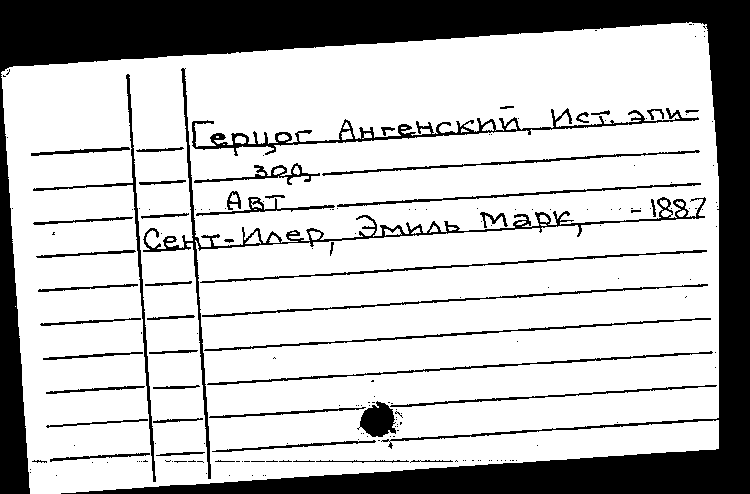 [Герцог Ангенский, Ист. эпи=
зод.
Авт
Сент-Илер, Эмиль Марк, -1887